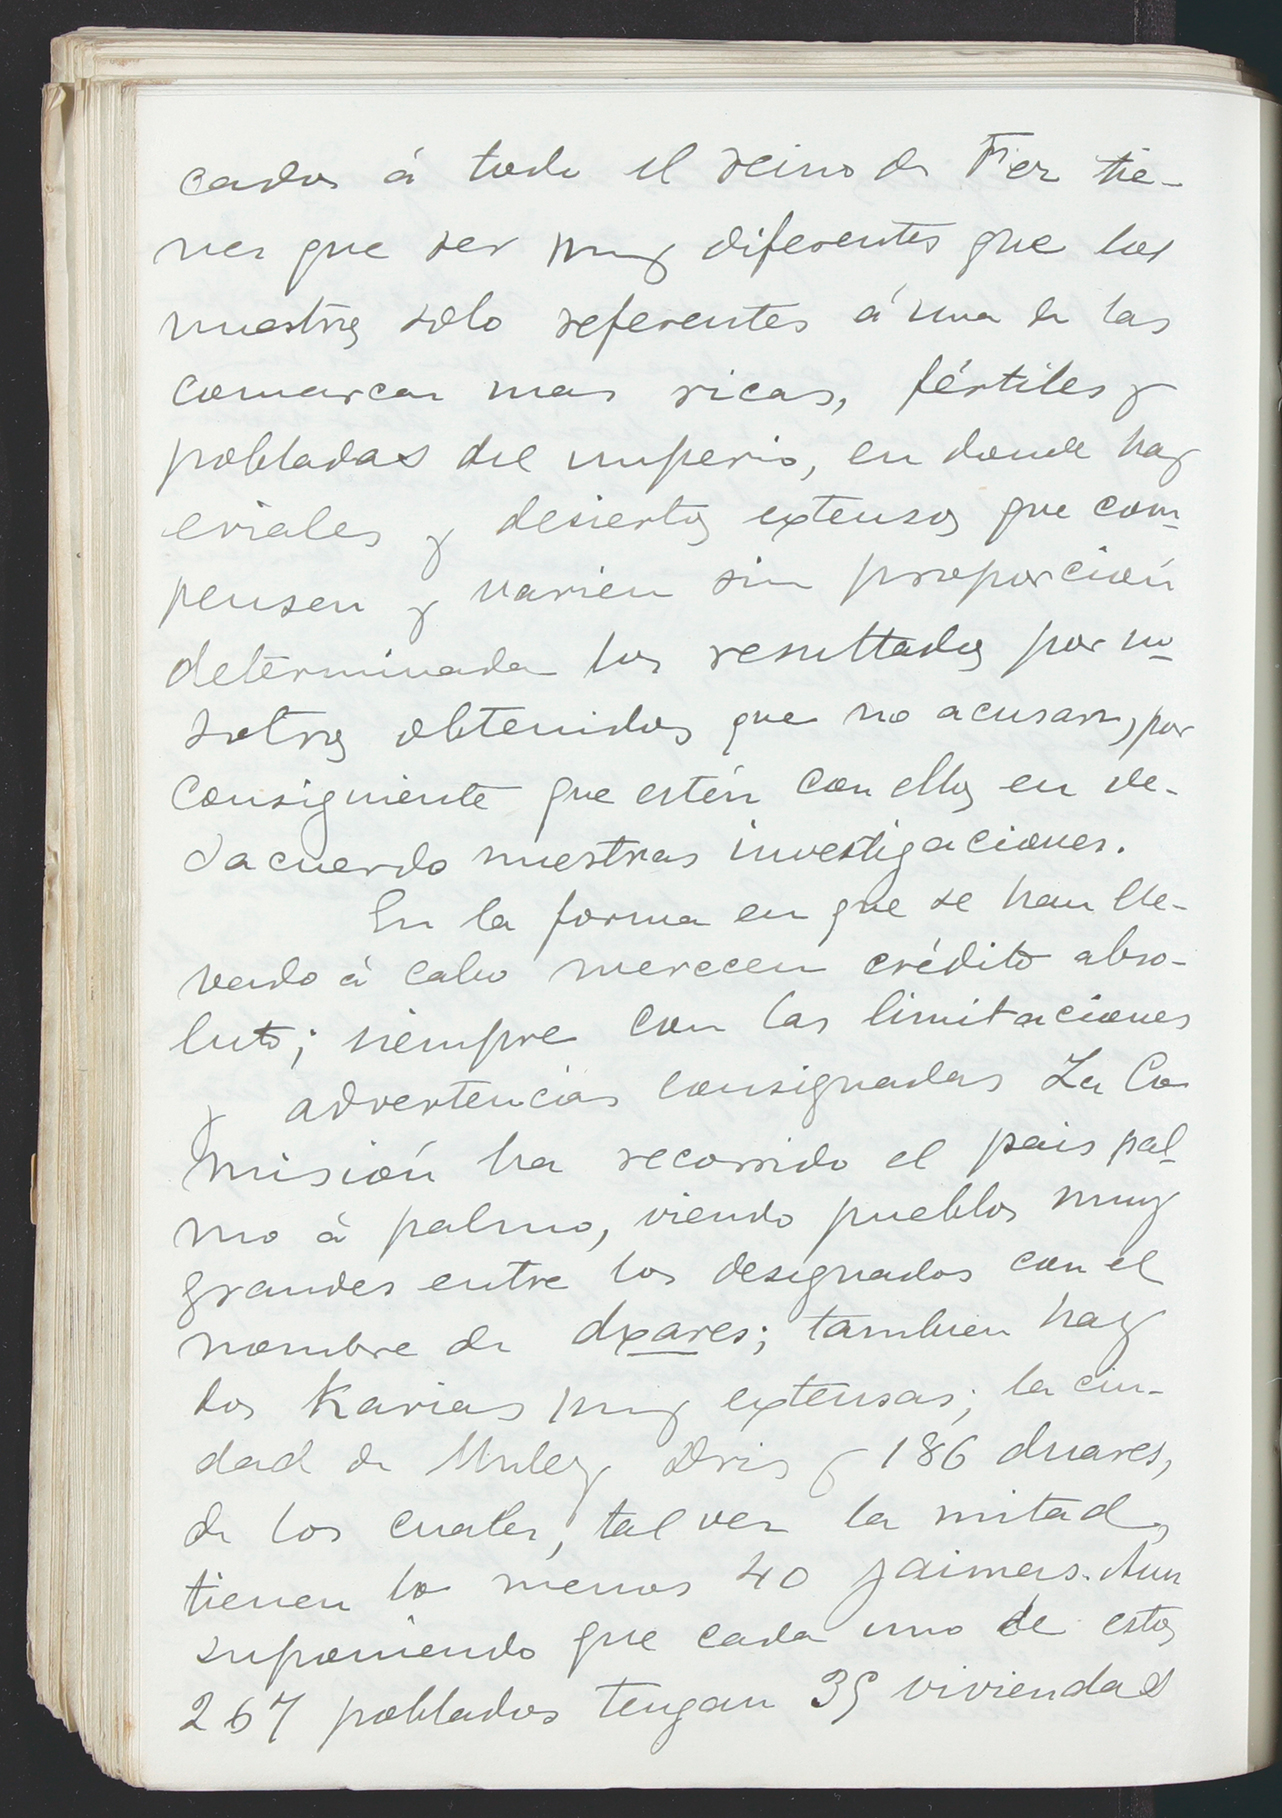 cados á todo el reino de Fez tie-
nen que ser muy diferentes que los
nuestros solo referentes á una de las
comarcas mas ricas, fértiles y
pobladas del imperio, en donde hay
eriales y desiertos extensos que com-
pensen y varien sin proporción
determinada los resultados por no-
sotros obtenidos que no acusan, por
consiguiente que estén con ellos en de-
sacuerdo nuestras investigaciones.
En la forma en que se han lle-
vado á cabo merecen crédito abso-
luto; siempre con las limitaciones
y advertencias consignadas La Co
misión ha recorrido el pais pal-
mo á palmo, viendo pueblos muy
grandes entre los designados con el
nombre de dxares; tambien hay
dos Karias muy extensas; la ciu-
dad de Muley Dris y 186 duares,
de los cuales, tal vez la mitad,
tienen lo menos 40 jaimas. Aun
suponiendo que cada uno de estos
267 poblados tengan 35 viviendas